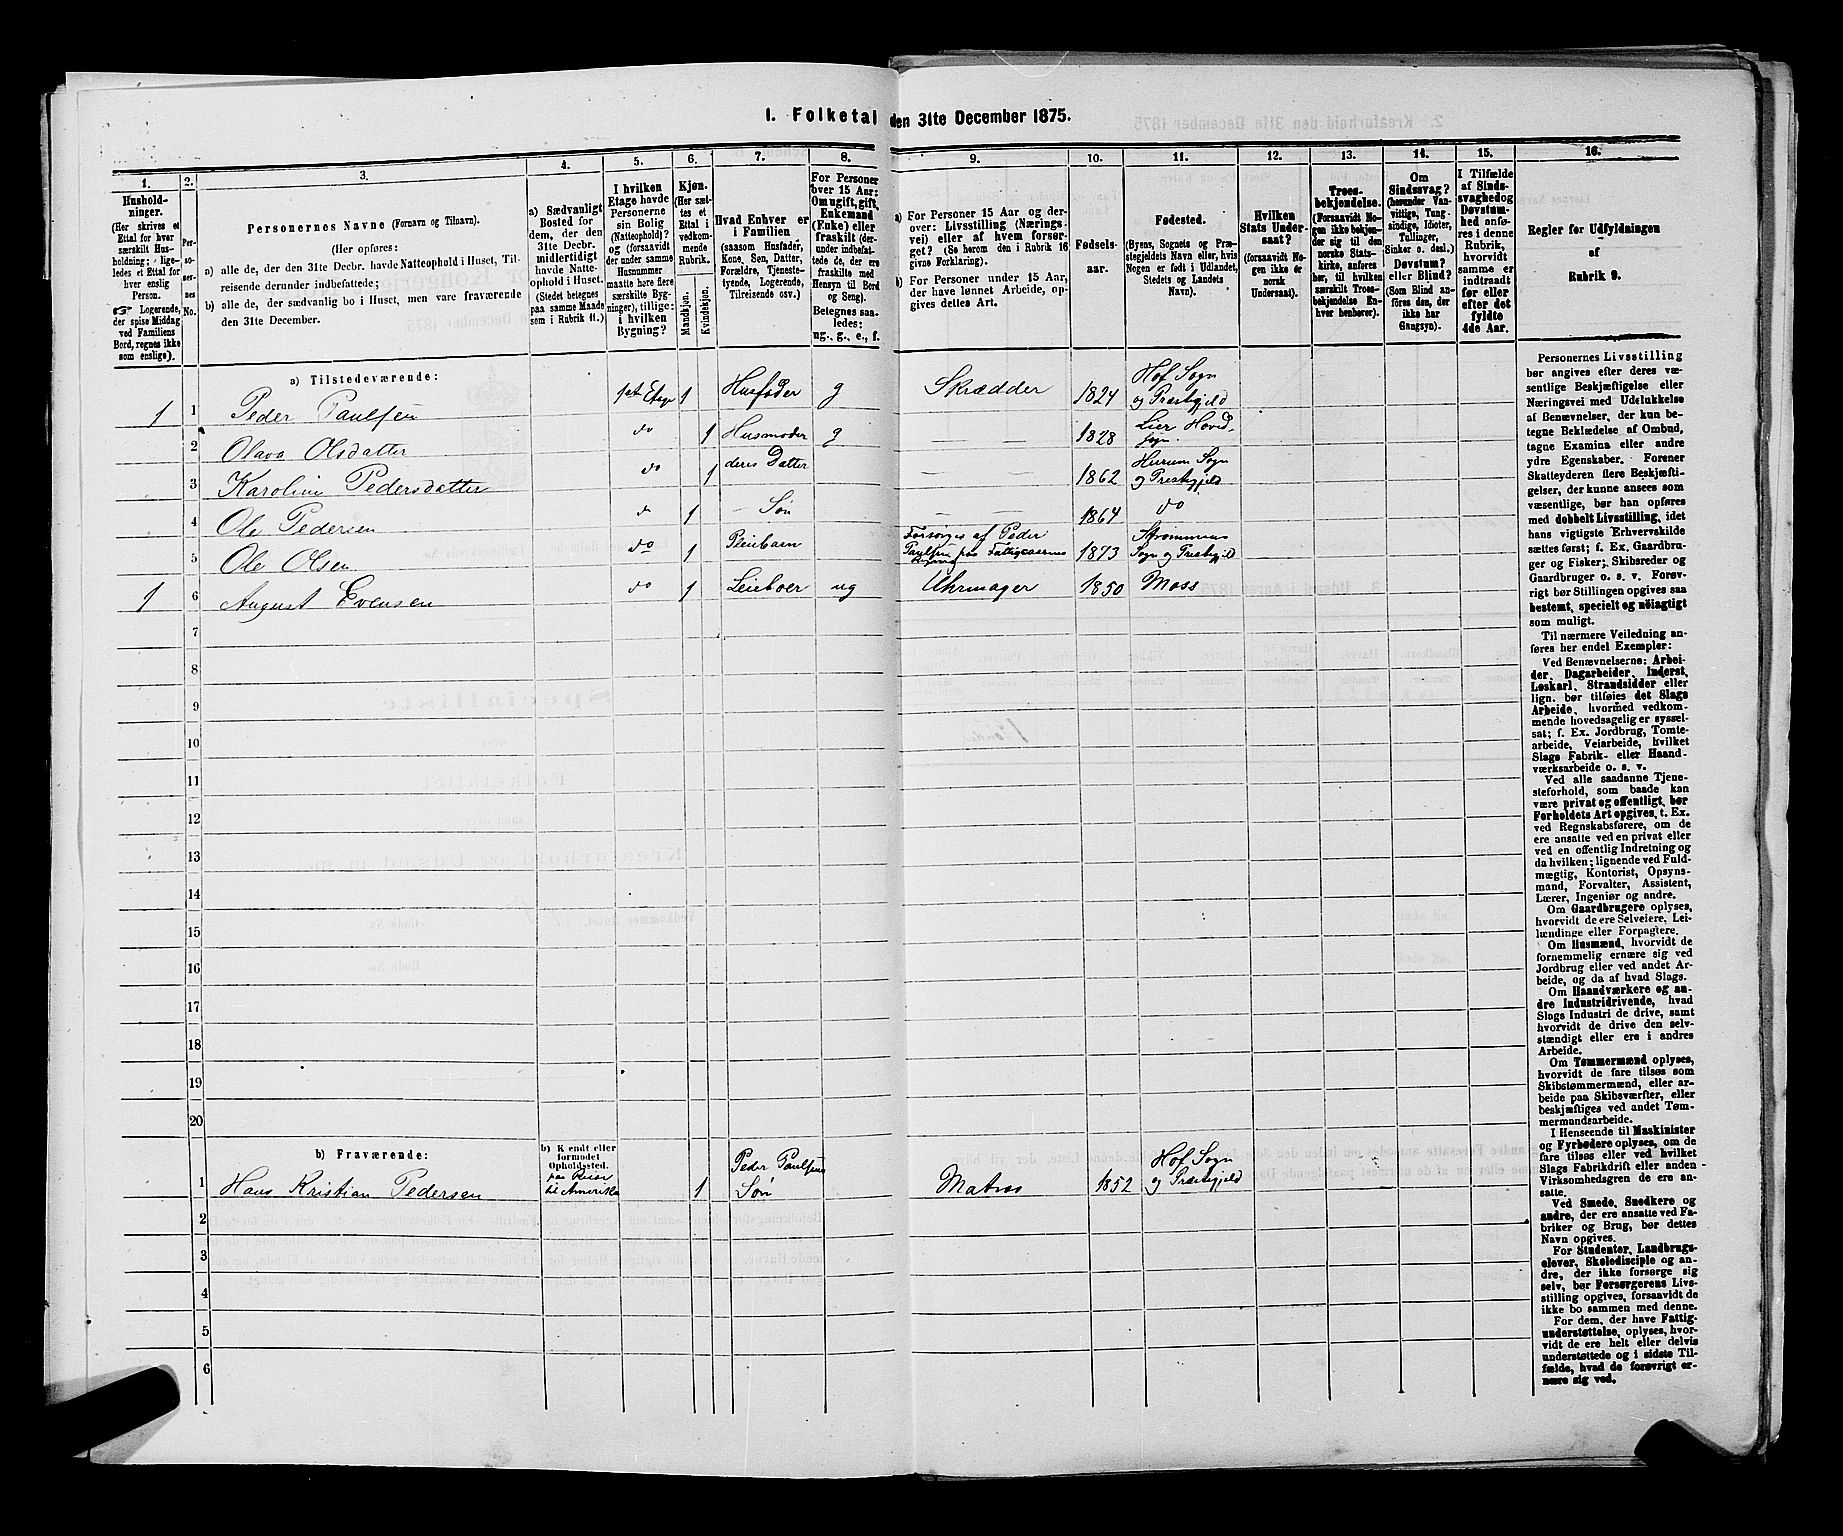 1. Folketal den 31te December 1875.
1.
2.
3.
4.
5.
6.
7.
8.
9.
10.
11.
12.
13.
14.
15.
16.
Hushold-
ninger.
(Her skrives et
Ettal for hver
særskilt Hus-
holdning; lige-
ledes et Ettal for
hver enslig
Person.
Logerende,
der spise Middag
ved Familiens
Bord, regnes ikke
som enslige).
Per-
so-
ner-
nes
No.
Personernes Navne (Fornavn og Tilnavn).
(Her opføres:
a) alle de, der den 31te Decbr. havde Natteophold i Huset, Til-
reisende derunder indbefattede;
b) alle de, der sædvanlig bo i Huset, men vare fraværende
den 31te December.
a) Sædvanligt
Bosted for
dem, der den
31te Decbr.
midlertidigt
havde Natte-
ophold i Huset.
(Stedet betegnes
paa samme Maade
som i Rubrik 11.)
I hvilken
Etage havde
Personerne
sin Bolig
(Natteophold)?
og (forsaavidt
der under samme
Husnummer
maatte høre flere
særskilte Byg-
ninger), tillige:
i hvilken
Bygning?
Kjøn.
(Her sæt-
tes et
Ettal i
vedkom-
mende
Rubrik.
Mandkjøn.
Kvindekjøn.
Hvad Enhver er
i Familien
(saasom Husfader,
Kone, Søn, Datter,
Forældre, Tjeneste-
tyende, Logerende,
Tilreisende osv.)
For Personer
over 15 Aar:
Om ugift, gift,
Enkemand
(Enke) eller
fraskilt (der-
under indbefat-
tede de, der ere
fraskilte med
Hensyn til Bord
og Seng).
Betegnes saa-
ledes:
ug., g., e., f.
a) For Personer 15 Aar og der-
over: Livsstilling (Nærings-
vei) eller af hvem forsør-
get? (Se herom den i Rubrik 16
givne Forklaring).
b) For Personer under 15 Aar,
der have lønnet Arbeide, op-
gives dettes Art.
Fødsels-
aar.
Fødested.
(Byens, Sognets og Præ-
stegjeldets Navn eller, hvis
Nogen er født i Udlandet,
Stedets og Landets
Navn).
Hvilken
Stats Under-
saat?
(forsaavidt No-
gen ikke er
norsk
Undersaat).
Troes-
bekjendelse.
(Forsaavidt No-
gen ikke bekjen-
der sig til den
norske Stats-
kirke, anføres
her, til hvilken
særskilt Troes-
bekjendelse En-
hver henhører).
Om
Sindssvag?
(herunder Van-
vittige, Tung-
sindige, Idioter,
Tullinger,
Sinker o. desl.)
Døvstum?
eller Blind?
(Som Blind an-
føres den, der
ikke har
Gangsyn).
I Tilfælde
af Sinds-
svaghed og
Døvstum-
hed anfø-
res i denne
Rubrik,
hvorvidt
samme er
indtraadt
før eller
efter det
fyldte
4de Aar.
Regler for Udfyldningen
af
Rubrik 9.
a) Tilstedeværende:
1 1 Peder Paulsen 1ste Etage 1 Husfader g Skrædder 1824 Hof Sogn
og Præstegjeld
2 Olava Olsdatter do 1 Husmoder g — — 1828 Lier Hoved
sogn.
3 Karoline Pedersdatter do 1 deres Datter — — 1862 Hurum Sogn
og Præstegjeld
4 Ole Pedersen do 1 — Søn — — 1864 do
5 Ole Olsen do 1 Pleiebarn Forsørges af Peder
Paulsen paa Fattigvæsenets
1873 Strømmens
Sogn og Præstegjeld
1 6 August Evensen do 1 Leieboer ug Uhrmager 1850 Moss
7
8
9
10
11
12
13
14
15
16
17
18
19
20
b) Fraværende:
b) Kjendt eller
formodet
Opholdssted.
1 Hans Kristian Pedersen paa Reise
til Amerika 1 Peder Paulsens
Søn Matros 1852 Hof Sogn
og Præstegjeld
2
3
4
5
6
Personernes Livsstilling
bør angives efter deres væ-
sentlige Beskjæftigelse eller
Næringsvei med Udelukkelse
af Benævnelser, der kun be-
tegne Beklædelse af Ombud,
tagne Examina eller andre
ydre Egenskaber. Forener
Skatteyderen flere Beskjæfti-
gelser, der kunne ansees som
væsentlige, bør han opføres
med dobbelt Livsstilling, idet
hans vigtigste Erhvervskilde
sættes først; f. Ex. Gaardbru-
ger og Fisker; Skibsreder og
Gaardbruger o. s. v. Forøv-
rigt bør Stillingen opgives saa
bestemt, specielt og nøiagtigt
som muligt.
Til nærmere Veiledning an-
føres her endel Exempler:
Ved Benævnelserne: Arbei-
der, Dagarbeider, Inderst,
Løskarl, Strandsidder eller
lign. bør tilføies det Slags
Arbeide, hvormed vedkom-
mende hovedsagelig er syssel-
sat; f. Ex. Jordbrug, Tomte-
arbeide, Veiarbeide, hvilket
Slags Fabrik- eller Haand-
værksarbeide o. s. v.
Ved alle saadanne Tjene-
steforhold, som baade kan
være privat og offentligt, bør
Forholdets Art opgives, t. Ex.
ved Regnskabsførere, om de
ere ansatte ved en privat eller
ved en offentlig Indretning og
da hvilken; lignende ved Fuld-
mægtig, Kontorist, Opsyns-
mand, Forvalter, Assistent,
Lærer, Ingeniør og andre.
Om Gaardbrugere oplyses,
hvorvidt de ere Selveiere, Lei-
lændinge eller Forpagtere.
Om Husmænd, hvorvidt de
fornemmelig ernære sig ved
Jordbrug eller ved andet Ar-
beide, og da af hvad Slags.
Om Haandværkere og an-
dre Industridrivende, hvad
Slags Industri de drive, samt
hvorvidt de drive den selv-
stændigt eller ere i andres
Arbeide.
Om Tømmermænd oplyses,
hvorvidt de fare tilsøs som
Skibstømmermænd, eller ar-
beide paa Skibsværfter, eller
beskjæftiges ved andet Tøm-
mermandsarbeide.
I Henseende til Maskinister
og Fyrbødere oplyses, om de
fare tilsøs eller ved hvilket
Slags Fabrikdrift eller anden
Virksomhedsgren de ere an-
satte.
Ved Smede, Snedkere og
andre, der ere ansatte ved Fa-
briker og Brug, bør dettes
Navn opgives.
For Studenter, Landbrugs-
elever, Skoledisciple og an-
dre, der ikke forsørge sig
selv, bør Forsørgerens Livs-
stilling opgives, forsaavidt de
ikke bo sammen med denne.
For dem, der have Fattig-
understøttelse, oplyses, hvor-
vidt de ere helt eller delvis
understøttede og i sidste Til-
fælde, hvad de forøvrigt er-
nære sig ved.